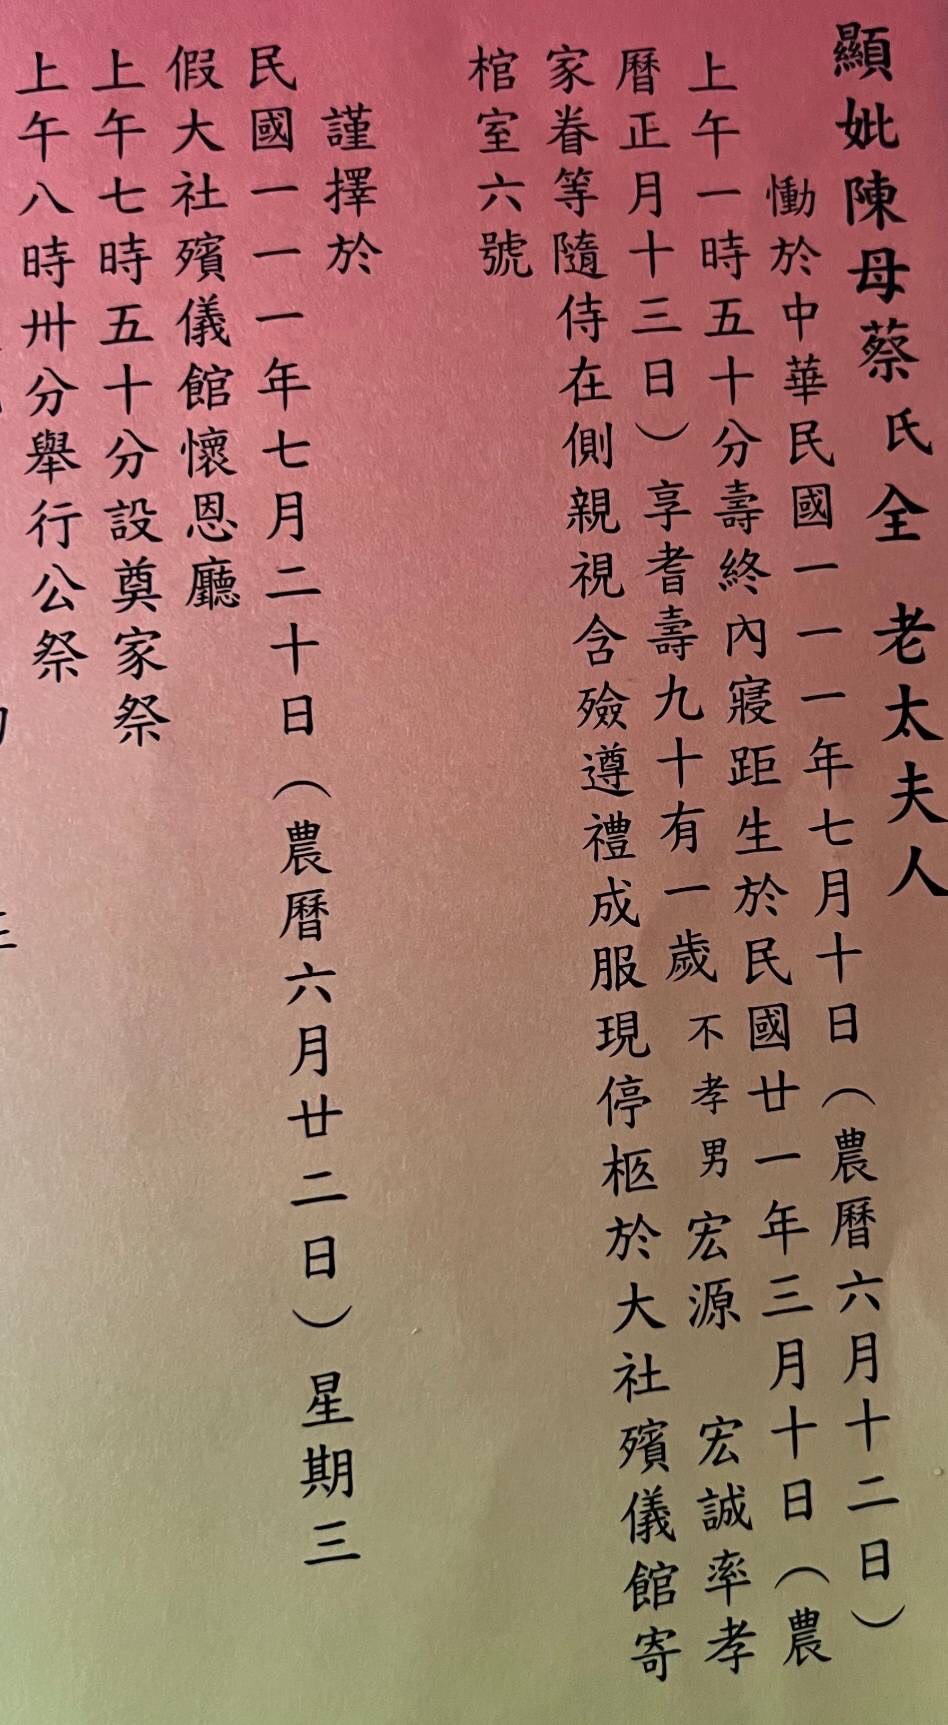 顯妣陳母蔡氏全 老太夫人
慟於中華民國一一一年七月十日（農曆六月十二日）
上午一時五十分壽終內寢距生於民國廿一年三月十日（農
曆正月十三日）享耆壽九十有一歲 不孝男 宏源 宏誠率孝
家眷等隨侍在側親視含殮遵禮成服現停柩於大社殯儀館寄
棺室六號
謹擇於
民國一一一年七月二十日（農曆六月廿二日）星期三
假大社殯儀館懷恩廳
上午七時五十分設奠家祭
上午八時卅分舉行公祭